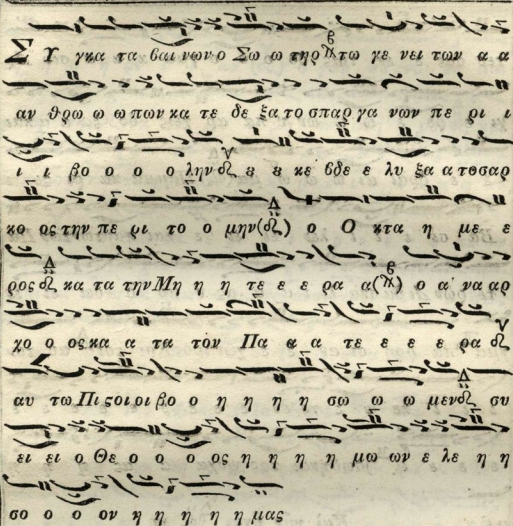 Σ Υ γκα τα βαι νων ο Σω ω τηρ τω γε νει των α α
αν θρω ω ω πων κα τε δε ξα το σπαρ γα νων πε ρι ι
ι ι βο ο ο ο λην ε ε κε βδε ε λυ ξα α το σαρ
κο ος την πε ρι το ο μην ο Ο κτα η με ε
ρος κα τα την Μη η η τε ε ε ρα α ο α να αρ
χο ο ος κα α τα τον Πα α α τε ε ε ε ρα
αυ τω Πι ϛοι οι βο ο η η η η σω ω ω μεν συ
ει ει ο Θε ο ο ο ος η η η η μω ων ε λε η η
σο ο ο ον η η η η η μας